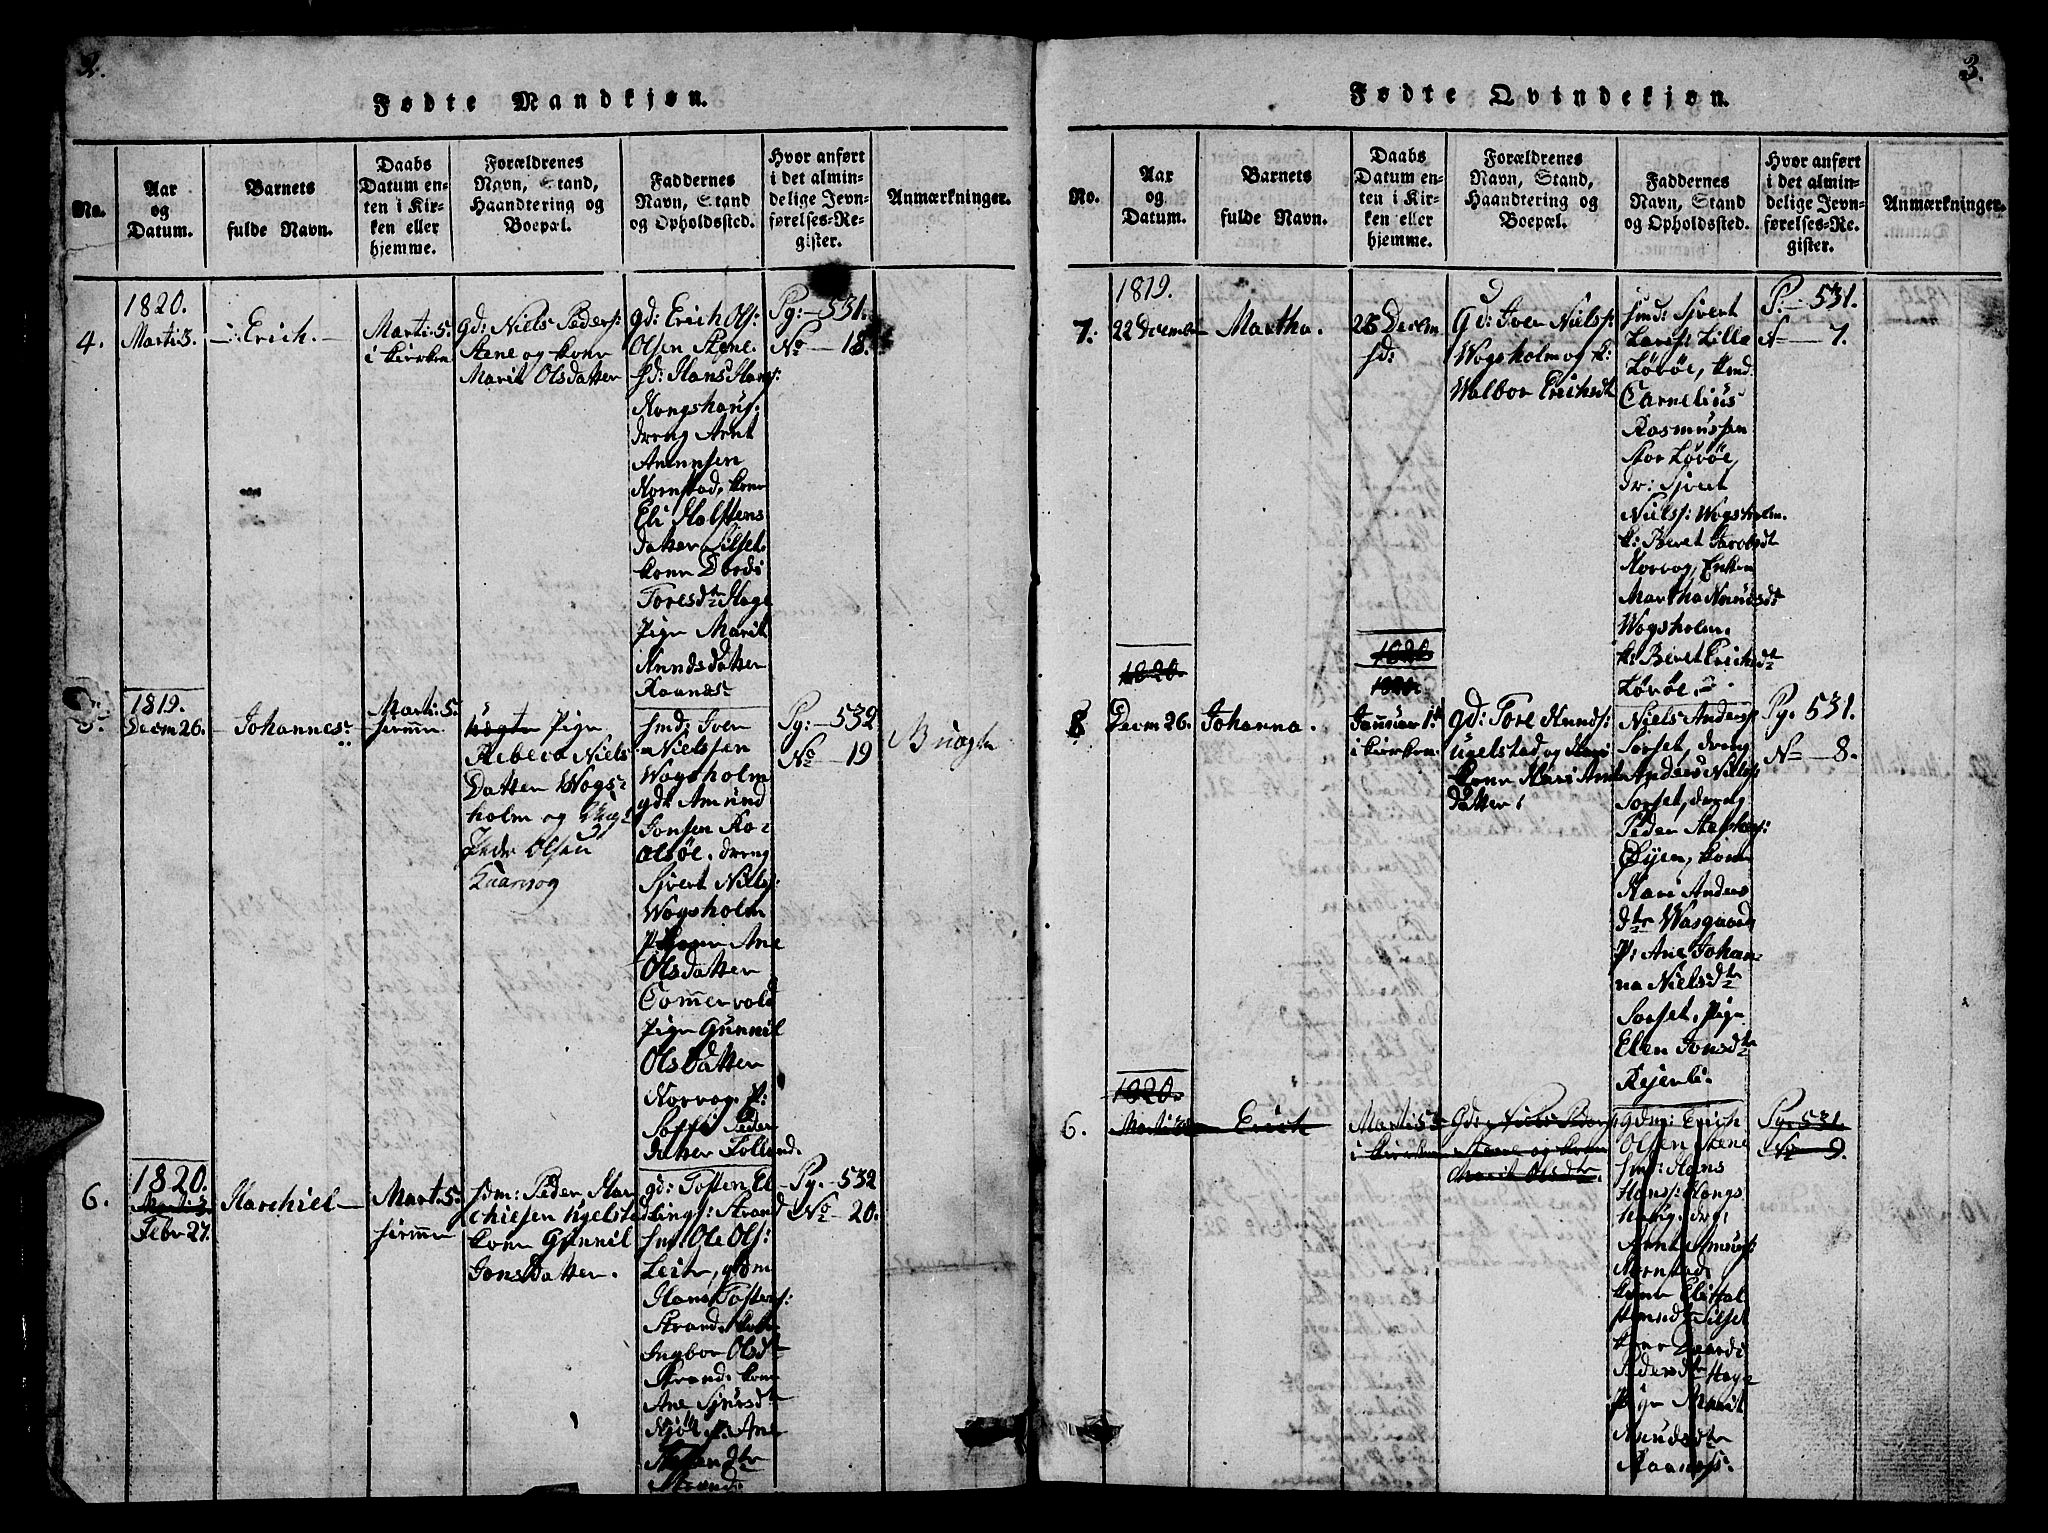 2.
Fødte Mandkjøn.
No.
Aar
og
Datum.
Barnets
fulde Navn.
Daabs
Datum en-
ten i Kir-
ken eller
hjemme.
Forældrenes
Navn, Stand,
Haandtering og
Boepæl.
Faddernes
Navn, Stand
og Opholdssted.
Hvor anført
i det almin-
delige Jevn-
førelses-Re-
gister.
Anmærkninger.
4.
1820.
Marti 3.
Erich.
Marti 5.
i Kirken
gd: Niels Peders:
Stene og Kone
Marit Olsdatter
gd: Erich Ols:
Olsen Stene.
Hans Hans:
Kongshaug.
dreng Arnt
Amunsen
Nornstad, Kone
Eli Halstens
datter Silset.
Kone Dordi
Toresdtr Hage
Pige Marit
Knudsdatter
Raanes
Pg: 531.
No 18.
5.
1819.
Decm 26.
Johannes
Marti 5.
hiemme
Pige
Rebeca Niels
Datter Wogs-
holm og
Peder Olsen
Qvarvog
Hmd: Iver
Nielssen
Wogsholm
gd: Amund
Jonsen
dreng
Sivert Niels:
Wogsholm
Ane
Olsdatter
Pige Gunnil
Olsdatter
Norvog. P:
Peder
datter Folland.
Pg: 532
No 19
Buagte
6.
1820.
Marti 3
Febr 27.
Harchiel
Marti 5.
hiemme
hdm: Peder Har
chiesen Ugelstad
Kone Gunnil
Jonsdatter.
gd: Tosten El-
lings: Strand
hm: Ole Ols:
Leite, gdm
Hans Tostens:
Strand, Kone
Ingbor Olsdtr
Strand. Kone
Ane Siursdtr
P. Ane
Strand.
Pg. 532
No 20.
3.
Fødte Qvindekjøn.
No.
Aar
og
Datum.
Barnets
fulde Navn.
Daabs
Datum en-
ten i Kir-
ken eller
hjemme.
Forældrenes
Navn, Stand,
Haandtering og
Boepæl.
Faddernes
Navn, Stand
og Opholdssted.
Hvor anført
i det almin-
delige Jevn-
førelses-Re-
gister.
Anmærkninger.
7.
1819.
22 Decembr
Martha.
26 Decbm
hd:
Gd: Iver Niels:
Wogsholm og K:
Walbor Erichsdt
Hmd: Sivert
Lars: Lille
Lørøe, Hmd.
Carnelius
Rasmussen
Stor Lørøe,
dr: Sivert
Niels: Wogsholm.
K: Beret Jacobsdt
Norvog, Enken
Martha Knudsdt
Wogsholm.
K: Beret Erichsdt
Lørøe.
P. 531.
N 7.
8
1820.
Decm 26.
Johanna.
1820
1820.
Januar 1.
i Kirken
gd: Tore Knuds:
Ugelstad og
Kone Kari Arnt
datter
Niels Anders:
Sorset, dreng
Anders Niels:
Sorset, dreng
Peder Stephens:
Øyen, Kone
Kari Anders
dtr Wasgaard
P: Ane Johan-
na Nielsdtr
Sorset, Pige
Elen Jonsdtr
Rejerli.
Pg. 531.
No 8.
6.
1820.
Marti
Erich
Marti 5
i Kirken
Gd: Niels Peders
Stene og Kone
Marit Olsdtr.
gdm: Erich
Olsen Stene
hmd: Hans
Hans: Kongs
haug. dr:
Arnt Amuns:
Nornstad,
Kone Eli Hal
stensdtr Silset
Kone Daardi
Pedersdtr Hage
Pige Marit
Knudsdtr
Raanes
Pg. 531.
No 9.